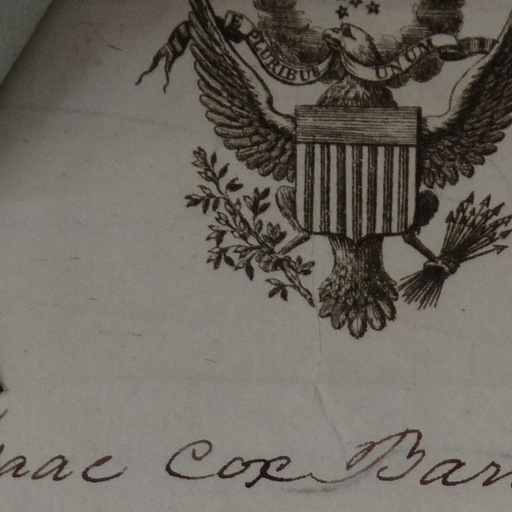 E PLURIBUS UNUM
aac Cox Bar